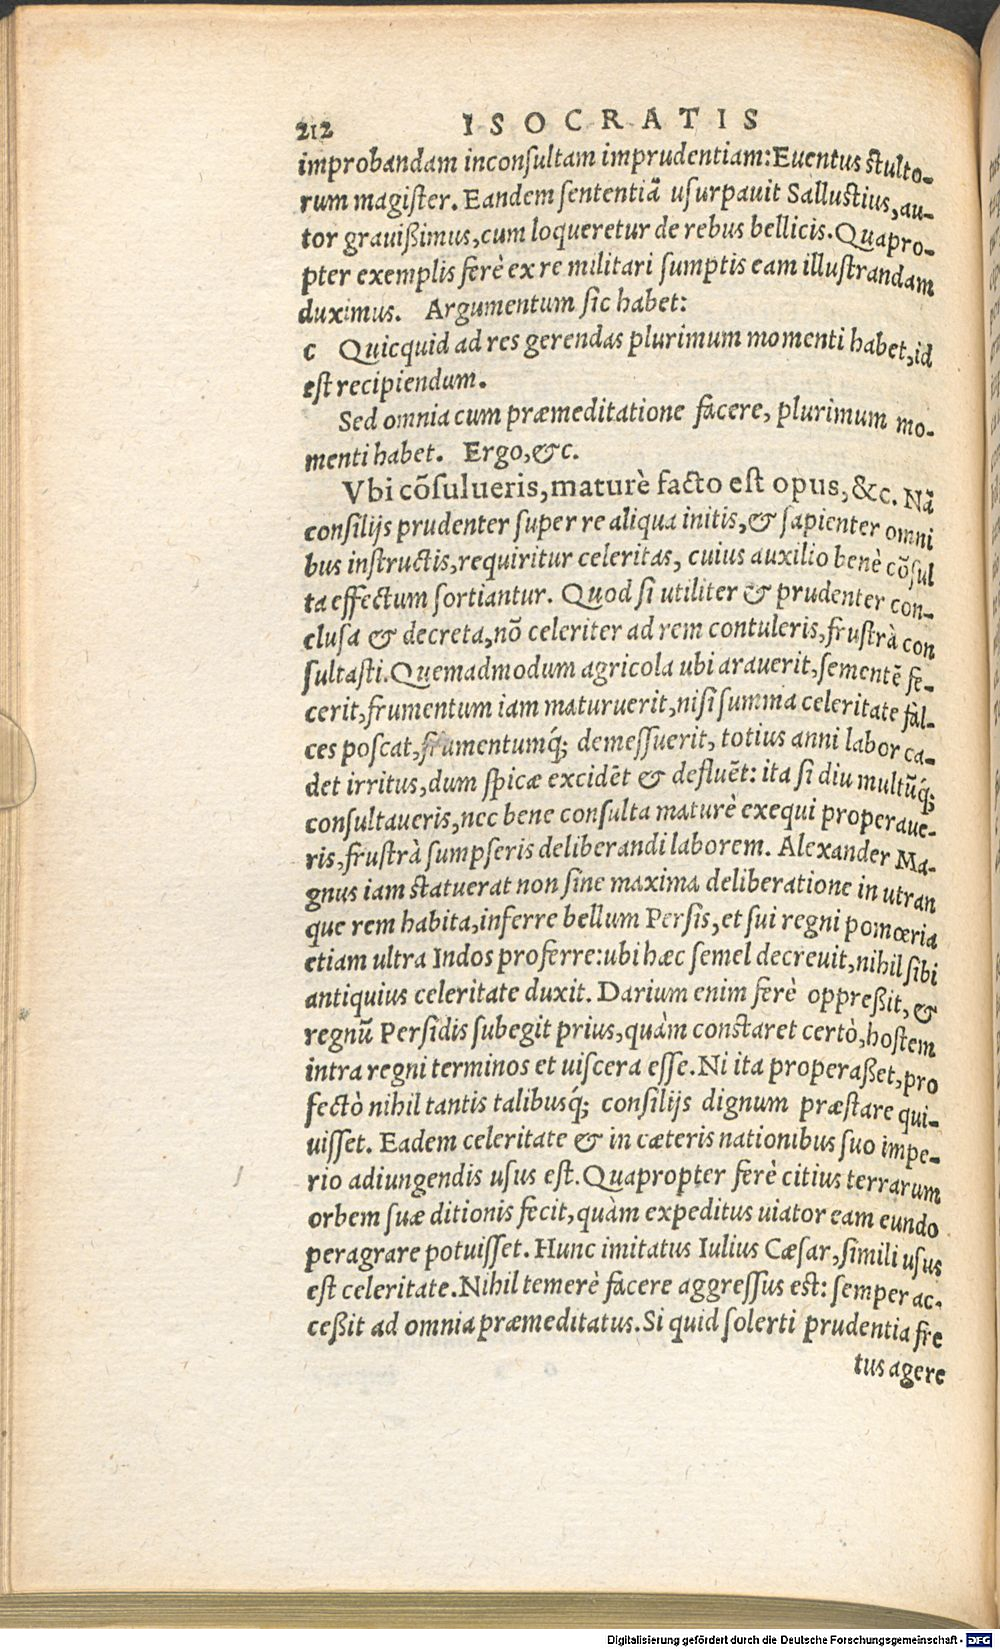 212 ISOCRATIS
improbandam inconsultam imprudentiam: Euentus stulto-
rum magister. Eandem sententiã usurpauit Sallustius, au-
tor grauißimus, cum loqueretur de rebus bellicis. Quapro-
pter exemplis ferè ex re militari sumptis eam illustrandam
duximus. Argumentum sic habet:
C Quicquid ad res gerendas plurimum momenti habet, id
est recipiendum.
Sed omnia cum præmeditatione facere, plurimum mo-
menti habet. Ergo, &c.
Vbi cõsulueris, maturè facto est opus, &c. Nã
consilijs prudenter super re aliqua initis, & sapienter omni
bus instructis, requiritur celeritas, cuius auxilio benè cõsul
ta effectum sortiantur. Quod si utiliter & prudenter con-
clusa & decreta, nõ celeriter ad rem contuleris, frustrà con
sultasti. Quemadmodum agricola ubi arauerit, sementẽ fe-
cerit, frumentum iam maturuerit, nisi summa celeritate fal-
ces poscat, frumentumq́; demessuerit, totius anni labor ca-
det irritus, dum spicæ excidẽt & defluẽt: ita si diu multũq́;
consultaueris, nec bene consulta maturè exequi properaue-
ris, frustrà sumpseris deliberandi laborem. Alexander Ma-
gnus iam statuerat non sine maxima deliberatione in utran
que rem habita, inferre bellum Persis, et sui regni pomœria
etiam ultra Indos proferre: ubi hæc semel decreuit, nihil sibi
antiquius celeritate duxit. Darium enim ferè oppreßit, &
regnũ Persidis subegit prius, quàm constaret certò, hostem
intra regni terminos et uiscera esse. Ni ita properaßet, pro
fectò nihil tantis talibusq́; consilijs dignum præstare qui-
uisset. Eadem celeritate & in cæteris nationibus suo impe-
rio adiungendis usus est. Quapropter ferè citius terrarum
orbem suæ ditionis fecit, quàm expeditus uiator eam eundo
peragrare potuisset. Hunc imitatus Iulius Cæsar, simili usus
est celeritate. Nihil temerè facere aggressus est: semper ac-
ceßit ad omnia præmeditatus. Si quid solerti prudentia fre
tus agere
Digitalisierung gefördert durch die Deutsche Forschungsgemeinschaft - DFG